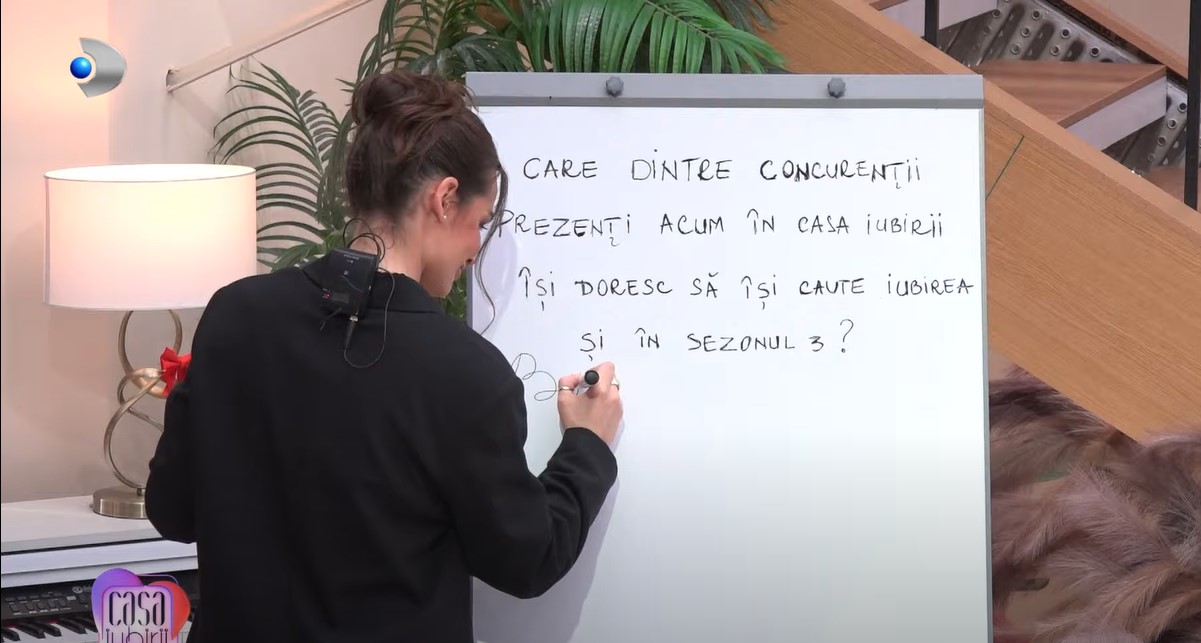 CARE DINTRE CONCURENȚII
PREZENȚI ACUM ÎN CASA IUBIRII
ÎȘI DORESC SĂ ÎȘI CAUTE IUBIREA
ȘI ÎN SEZONUL 3?
casa
iubirii